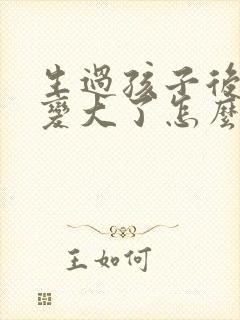 生過孩子後
變大了怎麼
王如何